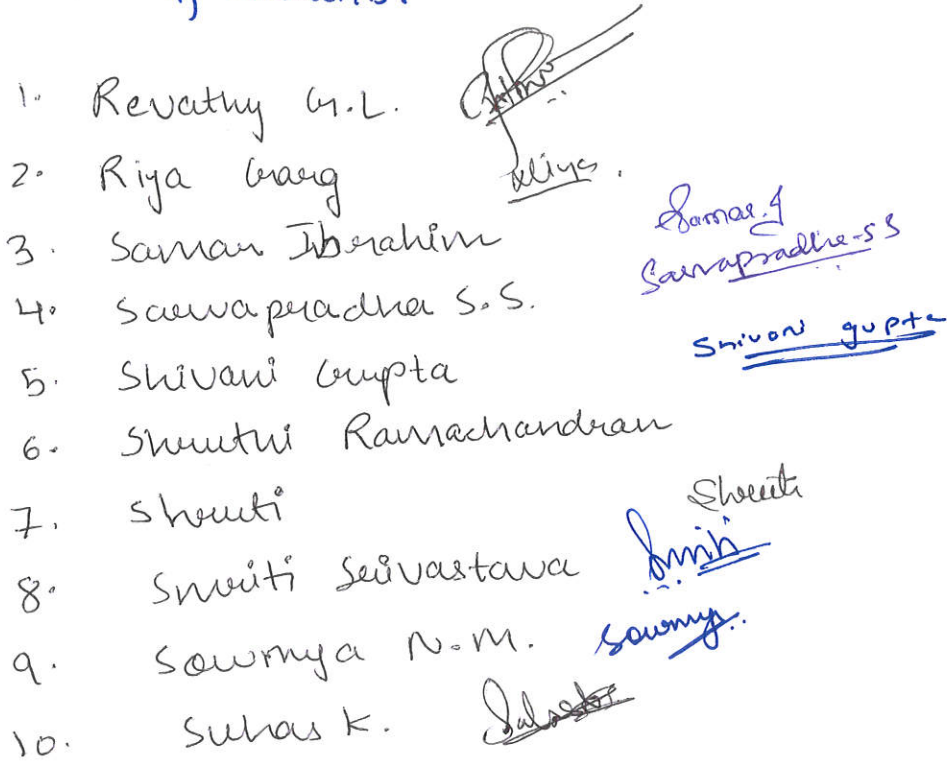 1. Revathy G.L.
2. Riya Garg Riya.
3. Samar Ibrahim Samar.I
4. Sarvapradha S.S. Sarvapradha-SS
5. Shivani Gupta Shivani gupta
6. Shruthi Ramachandran
7. Shruti Shruti
8. Smriti Srivastava Smriti
9. Sowmya N.M. Sowmya
10. Suhas K.